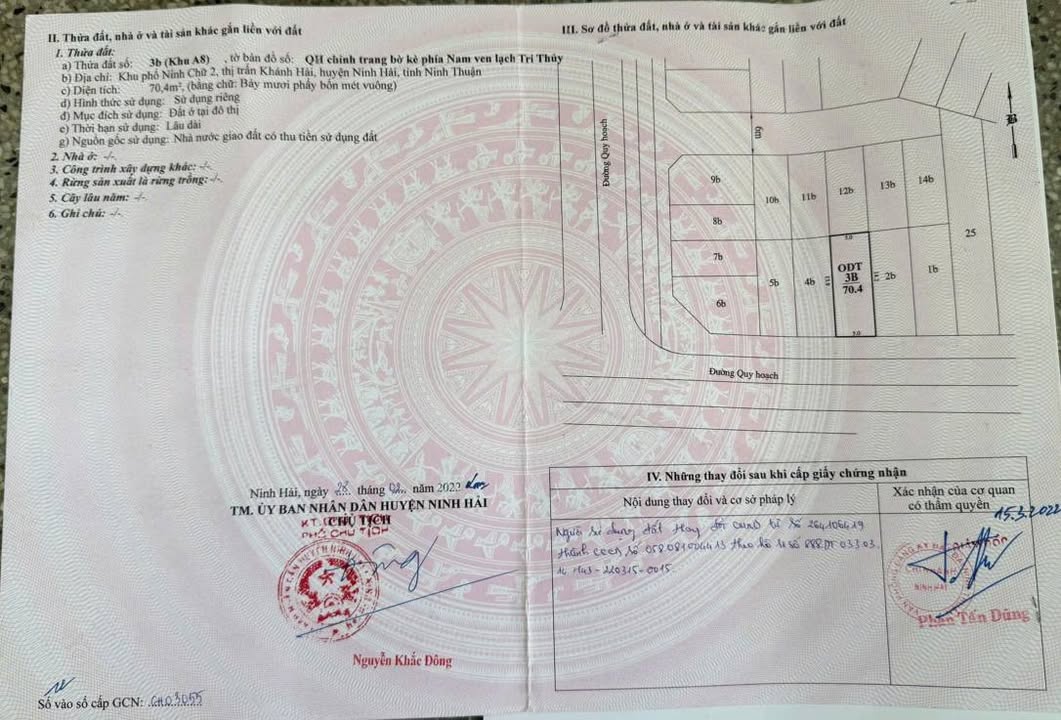 II. Thửa đất, nhà ở và tài sản khác gắn liền với đất
1. Thửa đất:
a) Thửa đất số: 3b (Khu A8) , tờ bản đồ số: QH chỉnh trang bờ kè phía Nam ven lạch Tri Thủy
b) Địa chỉ: Khu phố Ninh Chữ 2, thị trấn Khánh Hải, huyện Ninh Hải, tỉnh Ninh Thuận
c) Diện tích: 70,4m², (bằng chữ: Bảy mươi phẩy bốn mét vuông)
d) Hình thức sử dụng: Sử dụng riêng
đ) Mục đích sử dụng: Đất ở tại đô thị
e) Thời hạn sử dụng: Lâu dài
g) Nguồn gốc sử dụng: Nhà nước giao đất có thu tiền sử dụng đất
2. Nhà ở: -/-.
3. Công trình xây dựng khác: -/-.
4. Rừng sản xuất là rừng trồng: -/-.
5. Cây lâu năm: -/-.
6. Ghi chú: -/-.
Ninh Hải, ngày 28 tháng 02 năm 2022
TM. ỦY BAN NHÂN DÂN HUYỆN NINH HẢI
KT. CHỦ TỊCH
PHÓ CHỦ TỊCH
Nguyễn Khắc Đông
Số vào sổ cấp GCN: CH03055
III. Sơ đồ thửa đất, nhà ở và tài sản khác gắn liền với đất
B
Đường Quy hoạch
6m
9b
8b
7b
6b
10b
11b
12b
13b
14b
25
5b
4b
ODT
3B
70.4
2b
1b
5.0
5.0
Đường Quy hoạch
IV. Những thay đổi sau khi cấp giấy chứng nhận
Nội dung thay đổi và cơ sở pháp lý
Xác nhận của cơ quan
có thẩm quyền
15.3.2022
Người sử dụng đất thay đổi CMND từ số 264106419
thành CCCD số 058081004413 theo hồ sơ số
220315-0015.
NINH HẢI
Phan Tấn Dũng